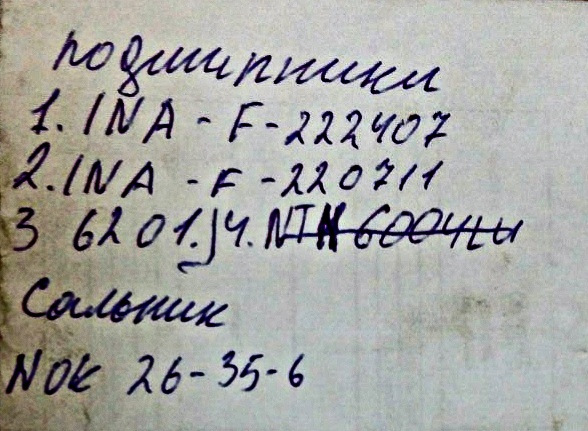 подшипники
1. INA - F - 222407
2. INA - F - 220711
3 6201.J4. NTN
Сальник
NOK 26-35-6